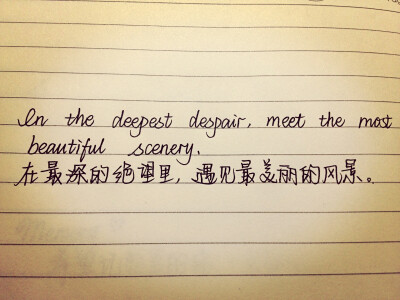 In the deepest despair, meet the most
beautiful scenery.
在最深的绝望里，遇见最美丽的风景。